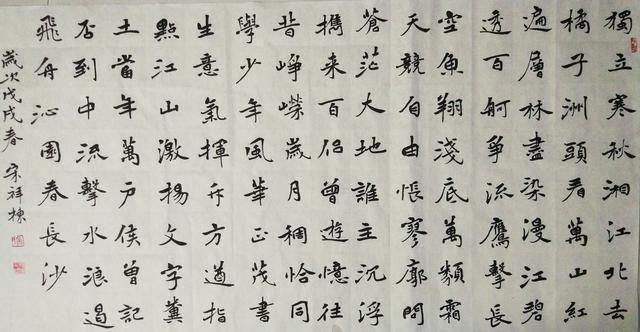 獨立寒秋湘江北去
橘子洲頭看萬山紅
遍層林盡染漫江碧
透百舸爭流鷹擊長
空魚翔淺底萬類霜
天競自由悵寥廓問
蒼茫大地誰主沉浮
攜来百侶曾遊憶往
昔崢嶸歲月稠恰同
學少年風華正茂書
生意氣揮斥方遒指
點江山激揚文字糞
土當年萬户侯曾記
否到中流擊水浪遏
飛舟沁園春長沙
歲次戊戌春 宋祥棟